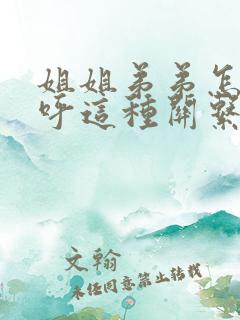 姐姐弟弟怎
呼這種關繫
文翰
未經同意禁止轉載